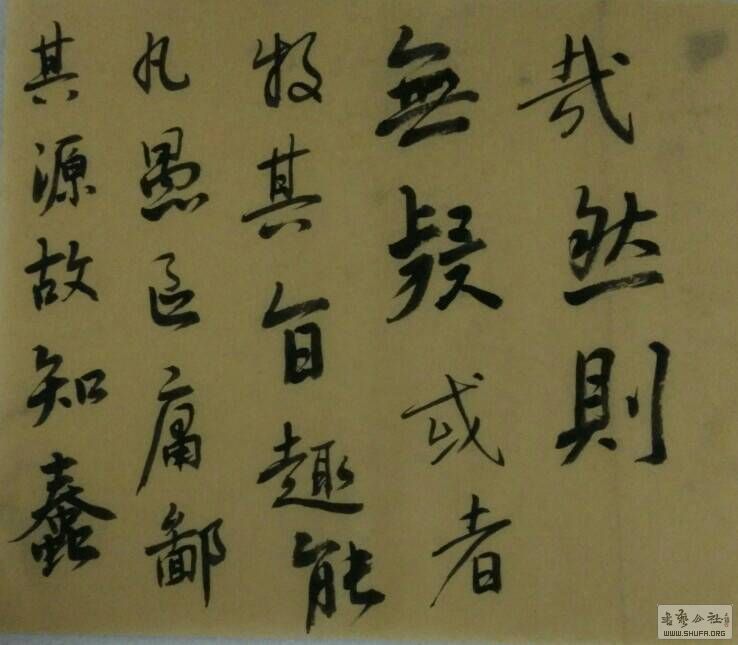 其源故知蠢
凡愚區庸鄙
投其旨趣能
無疑或者
哉然則
书艺公社
WWW.SHUFA.ORG